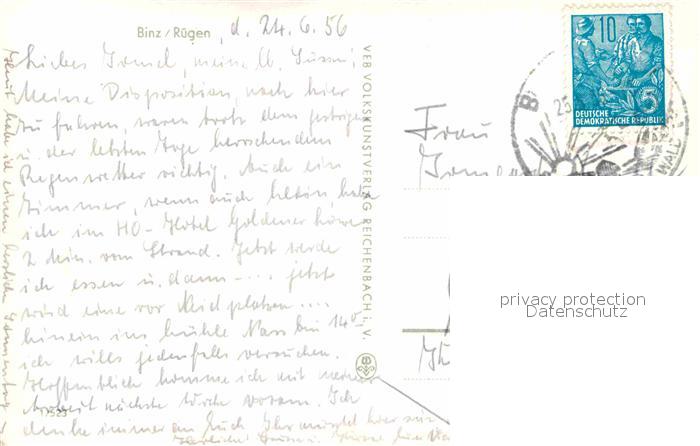 Binz / Rügen, d. 24.6.56
Liebes
Meine Disposition, nach hier
zu fahren, waren trotz dem gestrigen
u. der letzten Tage herrschenden
Regenwetter richtig. Auch ein
Zimmer, wenn auch klein, habe
ich im HO-Hotel Goldener Löwe
2 Min. vom Strand. Jetzt werde
ich essen u. dann -... jetzt
wird eine vor Neid platzen ....
hinein ins kühle Nass bin 14°,
ich wills jedenfalls versuchen.
Hoffentlich komme ich mit meiner
Arbeit nächste Woche voran. Ich
denke immer an Euch
Heut habe ich einen herrlichen Sonnentag
17523
VEB VOLKSKUNSTVERLAG REICHENBACH i. V.
Frau
10
5
DEUTSCHE
DEMOKRATISCHE REPUBLIK
privacy protection
Datenschutz